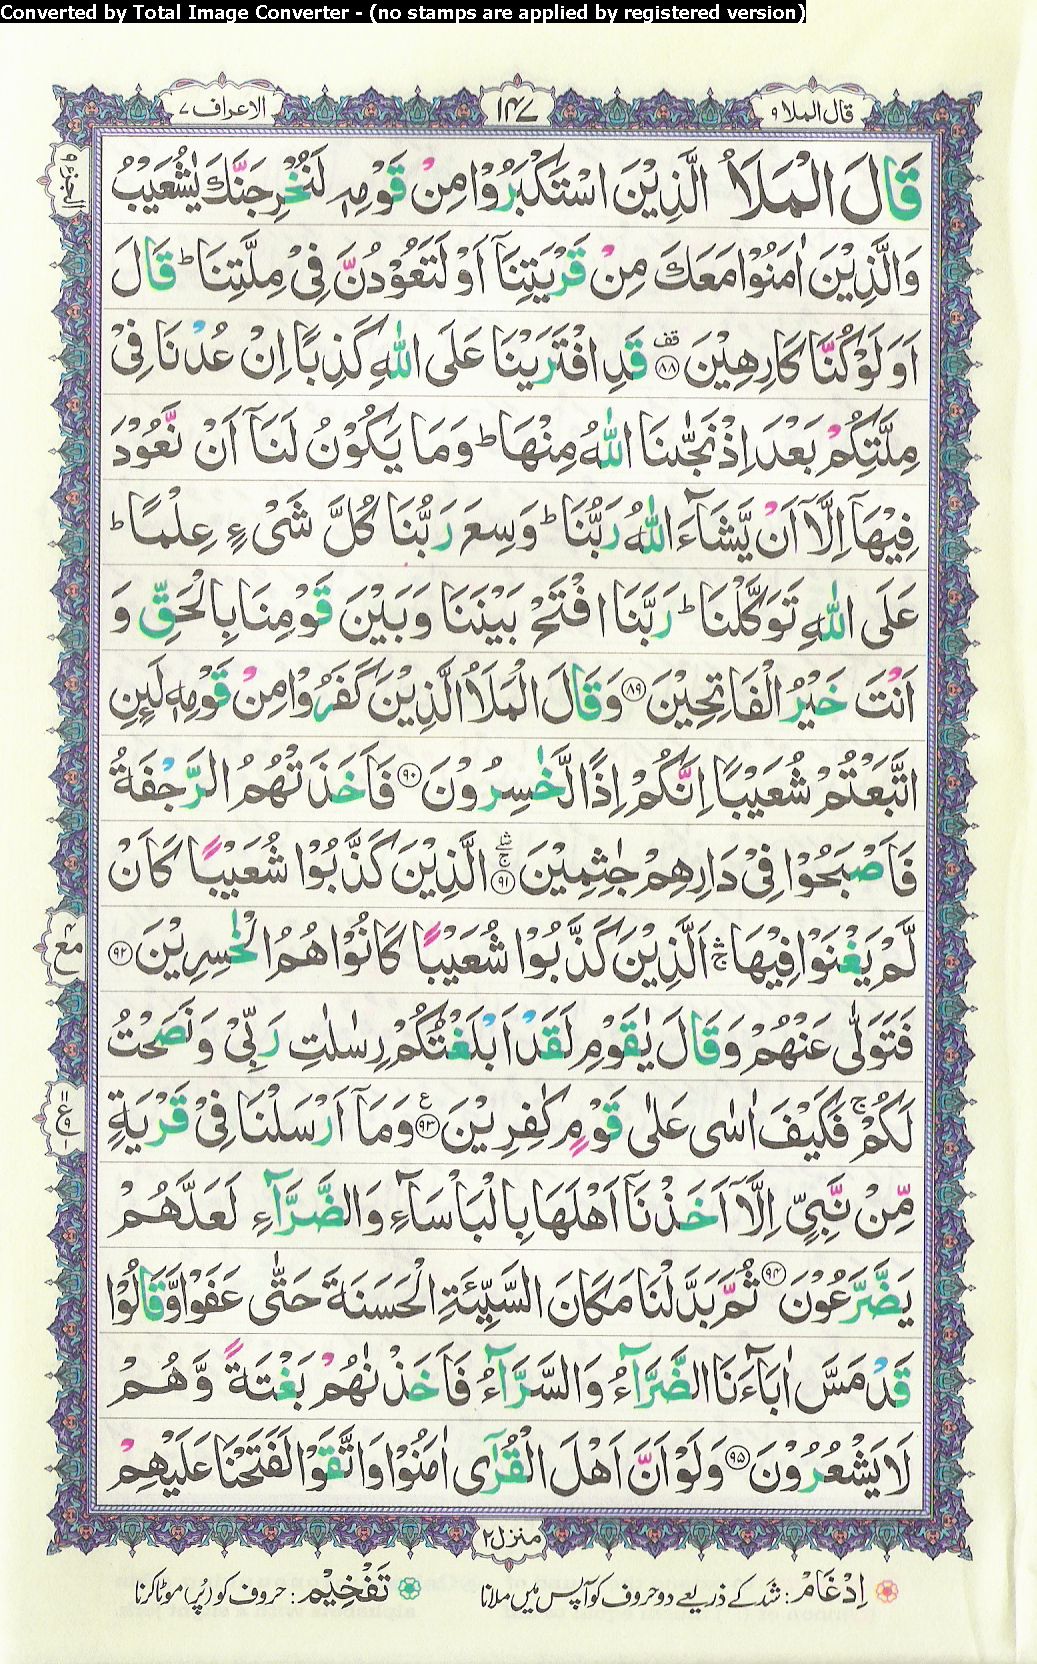 Converted by Total Image Converter - (no stamps are applied by registered version)
قال الملا ٩
١٤٧
الاعراف ٧
الجزء ٩
قَالَ الْمَلَاُ الَّذِيْنَ اسْتَكْبَرُوْا مِنْ قَوْمِهٖ لَنُخْرِجَنَّكَ يٰشُعَيْبُ
وَالَّذِيْنَ اٰمَنُوْا مَعَكَ مِنْ قَرْيَتِنَاۤ اَوْ لَتَعُوْدُنَّ فِيْ مِلَّتِنَا ؕ قَالَ
اَوَلَوْ كُنَّا كَارِهِيْنَ ﴿٨٨﴾ قف قَدِ افْتَرَيْنَا عَلَى اللّٰهِ كَذِبًا اِنْ عُدْنَا فِيْ
مِلَّتِكُمْ بَعْدَ اِذْ نَجّٰىنَا اللّٰهُ مِنْهَا ؕ وَمَا يَكُوْنُ لَنَاۤ اَنْ نَّعُوْدَ
فِيْهَاۤ اِلَّاۤ اَنْ يَّشَآءَ اللّٰهُ رَبُّنَا ؕ وَسِعَ رَبُّنَا كُلَّ شَيْءٍ عِلْمًا ؕ
عَلَى اللّٰهِ تَوَكَّلْنَا ؕ رَبَّنَا افْتَحْ بَيْنَنَا وَبَيْنَ قَوْمِنَا بِالْحَقِّ وَ
اَنْتَ خَيْرُ الْفَاتِحِيْنَ ﴿٨٩﴾ وَقَالَ الْمَلَاُ الَّذِيْنَ كَفَرُوْا مِنْ قَوْمِهٖ لَئِنِ
اتَّبَعْتُمْ شُعَيْبًا اِنَّكُمْ اِذًا لَّخٰسِرُوْنَ ﴿٩٠﴾ فَاَخَذَتْهُمُ الرَّجْفَةُ
فَاَصْبَحُوْا فِيْ دَارِهِمْ جٰثِمِيْنَ ﴿٩١﴾ الَّذِيْنَ كَذَّبُوْا شُعَيْبًا كَاَنْ
لَّمْ يَغْنَوْا فِيْهَا ۛۚ اَلَّذِيْنَ كَذَّبُوْا شُعَيْبًا كَانُوْا هُمُ الْخٰسِرِيْنَ ﴿٩٢﴾
مع
فَتَوَلّٰى عَنْهُمْ وَقَالَ يٰقَوْمِ لَقَدْ اَبْلَغْتُكُمْ رِسٰلٰتِ رَبِّيْ وَنَصَحْتُ
لَكُمْ ۚ فَكَيْفَ اٰسٰى عَلٰى قَوْمٍ كٰفِرِيْنَ ﴿٩٣﴾ ع وَمَاۤ اَرْسَلْنَا فِيْ قَرْيَةٍ
١١ ع ٩ ١
مِّنْ نَّبِيٍّ اِلَّاۤ اَخَذْنَاۤ اَهْلَهَا بِالْبَاْسَآءِ وَالضَّرَّآءِ لَعَلَّهُمْ
يَضَّرَّعُوْنَ ﴿٩٤﴾ ثُمَّ بَدَّلْنَا مَكَانَ السَّيِّئَةِ الْحَسَنَةَ حَتّٰى عَفَوْا وَّقَالُوْا
قَدْ مَسَّ اٰبَآءَنَا الضَّرَّآءُ وَالسَّرَّآءُ فَاَخَذْنٰهُمْ بَغْتَةً وَّهُمْ
لَا يَشْعُرُوْنَ ﴿٩٥﴾ وَلَوْ اَنَّ اَهْلَ الْقُرٰۤى اٰمَنُوْا وَاتَّقَوْا لَفَتَحْنَا عَلَيْهِمْ
منزل ٢
اِدْغَامْ: شد کے ذریعے دو حروف کو آپس میں ملانا تَفْخِيْم: حروف کو (پُر) موٹا کرنا